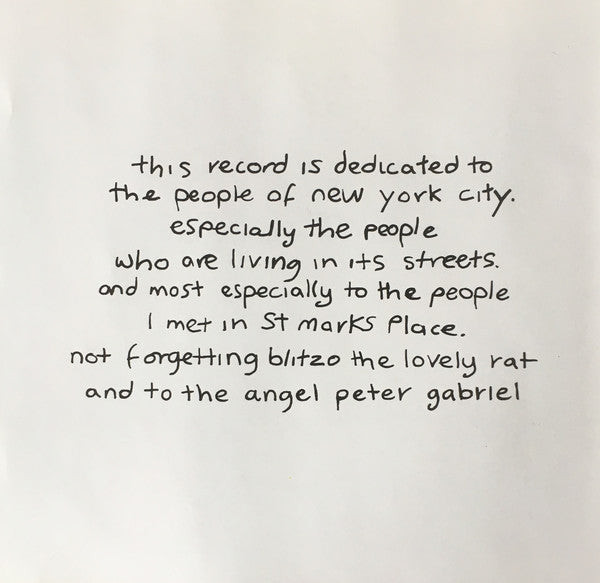 this record is dedicated to
the people of new york city.
especially the people
who are living in its streets.
and most especially to the people
I met in St marks Place.
not forgetting blitzo the lovely rat
and to the angel peter gabriel